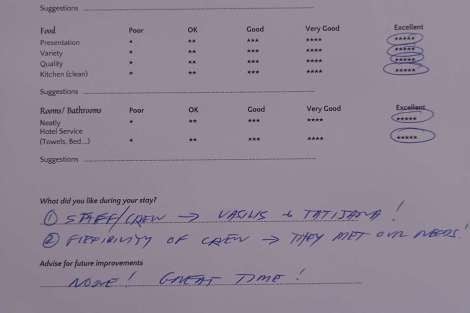 Suggestions
Food Poor OK Good Very Good Excellent
Presentation * ** *** **** *****
Variety * ** *** **** *****
Quality * ** *** **** *****
Kitchen (clean) * ** *** **** *****
Suggestions
Rooms/ Bathrooms Poor OK Good Very Good Excellent
Neatly * ** *** **** *****
Hotel Service
(Towels, Bed...) * ** *** **** *****
Suggestions
What did you like during your stay?
① STAFF/CREW → VASILIS & TATIJANA!
② FLEXIBILITY OF CREW → THEY MET OUR NEEDS!
Advise for future improvements
NONE! GREAT TIME!